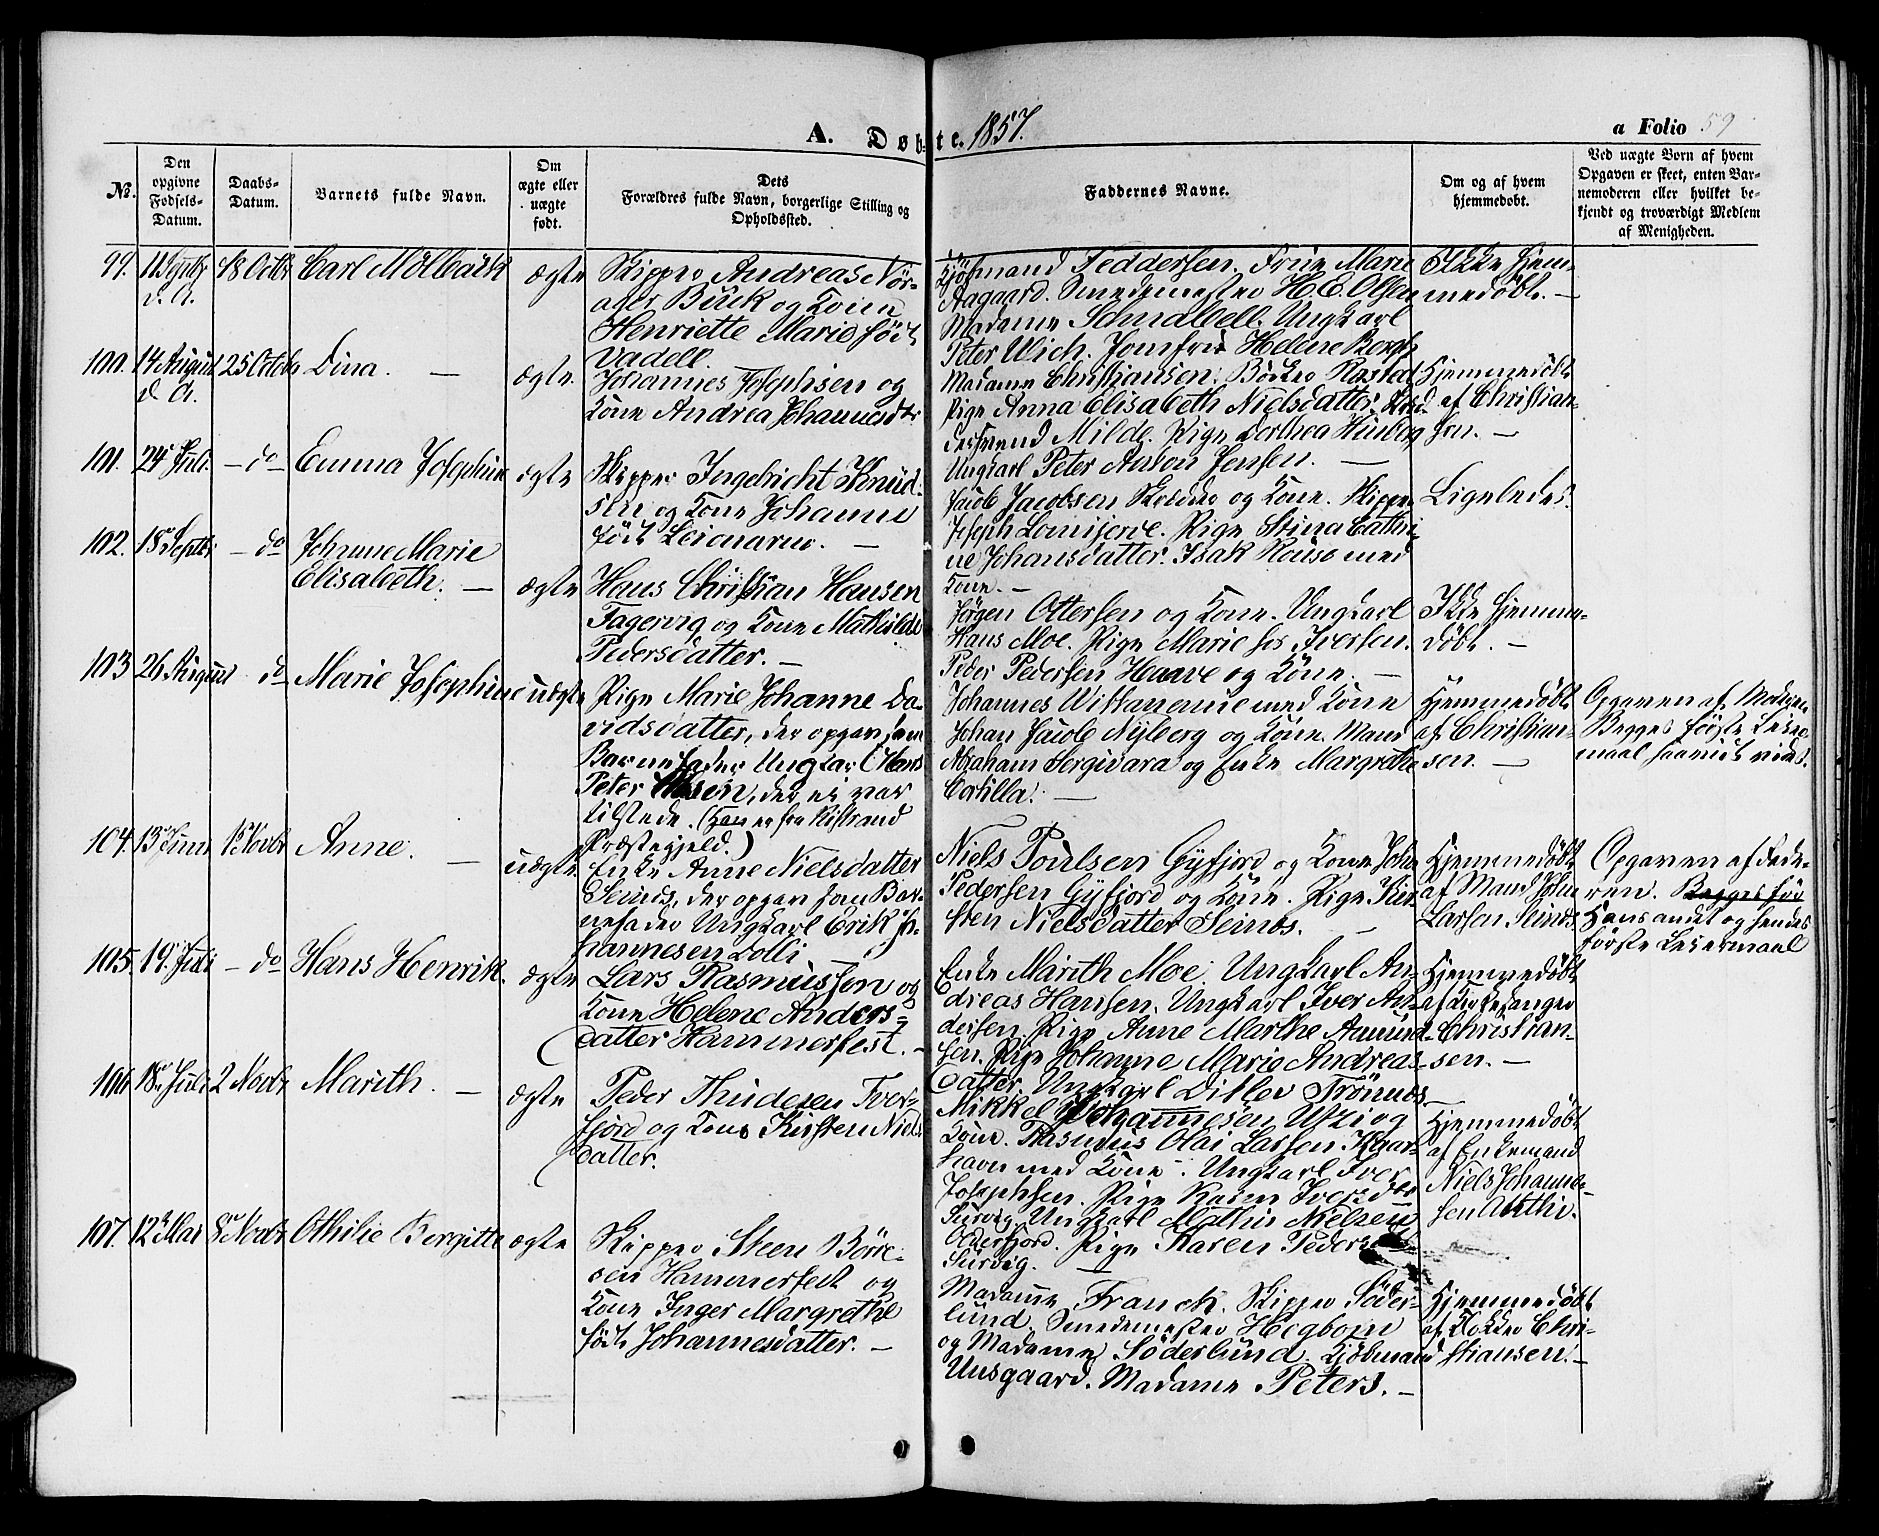 A. Døbte. 1857.
a Folio 59
No.
Den opgivne Fødsels-Datum.
Daabs-Datum.
Barnets fulde Navn.
Om ægte eller uægte født.
Dets Forældres fulde Navn, borgerlige Stilling og Opholdssted.
Faddernes Navne.
Om og af hvem hjemmedøbt.
Ved uægte Børn af hvem Opgaven er skeet, enten Barnemoderen eller hvilket bekjendt og troværdigt Medlem af Menigheden.
99. 11 Septbr d. A. 18 Octbr Carl Mölbach ægte
Skipper Andreas Nör-
ager Buck og Kone
Henriette Marie født
Vadell.
Kjøbmand Feddersen. Frue Marie
Aagaard. Smedemester H. C. Olsen
Madame Schnabell. Ungkarl
Peter Wich. Jomfru Helene Bergh
Ikke hjem-
medøbt. —
100. 14 August d. A. 25 Octob Dina. — ægte
Johannes Josephsen og
Kone Andrea Johannesdtr
Madame Christiansen. Bödker Rastad
Pige Anna Elisabeth Nielsdatter.
Milde. Pige Dorthea
Ungkarl Peter Anton Jensen. —
Hjemmedøbt
af Christian-
sen. —
101. 24 Juli — do Emma Josephine ægte
Skipper Ingebricht Knud-
sen og Kone Johanne
født —
Jacob Jacobsen Skrædder og Kone. Skipper
Joseph Lomijerve. Pige Stina Cathri-
ne Johansdatter. Isak med
Kone. —
Ligeledes.
102. 18 Septbr — do Johanne Marie
Elisabeth. — ægte
Hans Christian Hansen
Fagervig og Kone Mathilde
Pedersdatter. —
Jørgen Ottersen og Kone. Ungkarl
Hans Moe. Pige Marie hos Iversen.
Peder Pedersen Haave og Kone. —
Ikke hjemme-
døbt. —
103 26 August do Marie Josephine uægte
Pige Marie Johanne Da-
vidsdatter, der opgav som
Barnefader Ungkarl Hans
Peter Olsen, der ei var
tilstede. (Han er fra Kistrand
Præstegjeld.)
Johannes Wittaniemie med Kone
Johan Jacob Nyberg og Kone. Mand
Abraham Sergivara og Enke Margrethe
Cortilla. —
Hjemmedøbt
af Christian-
sen. —
Opgaven af Moderen
Begges første Leier-
maal saavidt vides.
104. 13 Juni 1 Novbr Anne. — uægte
Enke Anne Nielsdatter
Seines, der opgav som Bar-
nefader Ungkarl Erik Jo-
hannesen Lolli
Niels Poulsen Gyfjord og Kone John
Pedersen Gyfjord og Kone. Pige Kir-
sten Nielsdatter Seines. —
Hjemmedøbt
af Mand John
Larsen Seines
Opgaven af Fade-
ren. Begges før
Hans andet og hendes
første Leiermaal
105. 19 Juli — do Hans Henrik. ægte
Lars Rasmussen og
Kone Helene Anders-
datter Hammerfest. —
Enke Marith Moe. Ungkarl An-
dreas Hansen. Ungkarl Iver An-
dersen. Pige Anne Marthe Amund-
sen. Pige Johanne Marie Andreas-
datter. Ungkarl Ditlev Trönnes
Hjemmedøbt
af Kirkesanger
Christian-
sen. —
106 18 Juli 2 Novbr Marith. — ægte
Peder Thudesen Tver-
fjord og Kone Kirsten Niels-
datter.
Mikkel Johannesen Utzi og
Kone. Rasmus Olai Larsen Klar-
havn med Kone. Ungkarl Iver
Josephsen. Pige Karen Iversdtr
Survig. Ungkarl Mathis Nielsen
Olderfjord. Pige Karen Peders
Survig. —
Hjemmedøbt
af Enkemand
Niels Johanne-
sen
107. 12 Mai 8 Novbr Othilie Bergitte ægte
Skipper Steen Börre-
sen Hammerfest og
Kone Inger Margrethe
født Johannesdatter. —
Madame Franck. Skipper Söder-
lund. Smedemester Högbom
og Madame Söderlund. Kjøbmand
Unsgaard. Madame Peters. —
Hjemmedøbt
af Klokker Chri-
stiansen. —